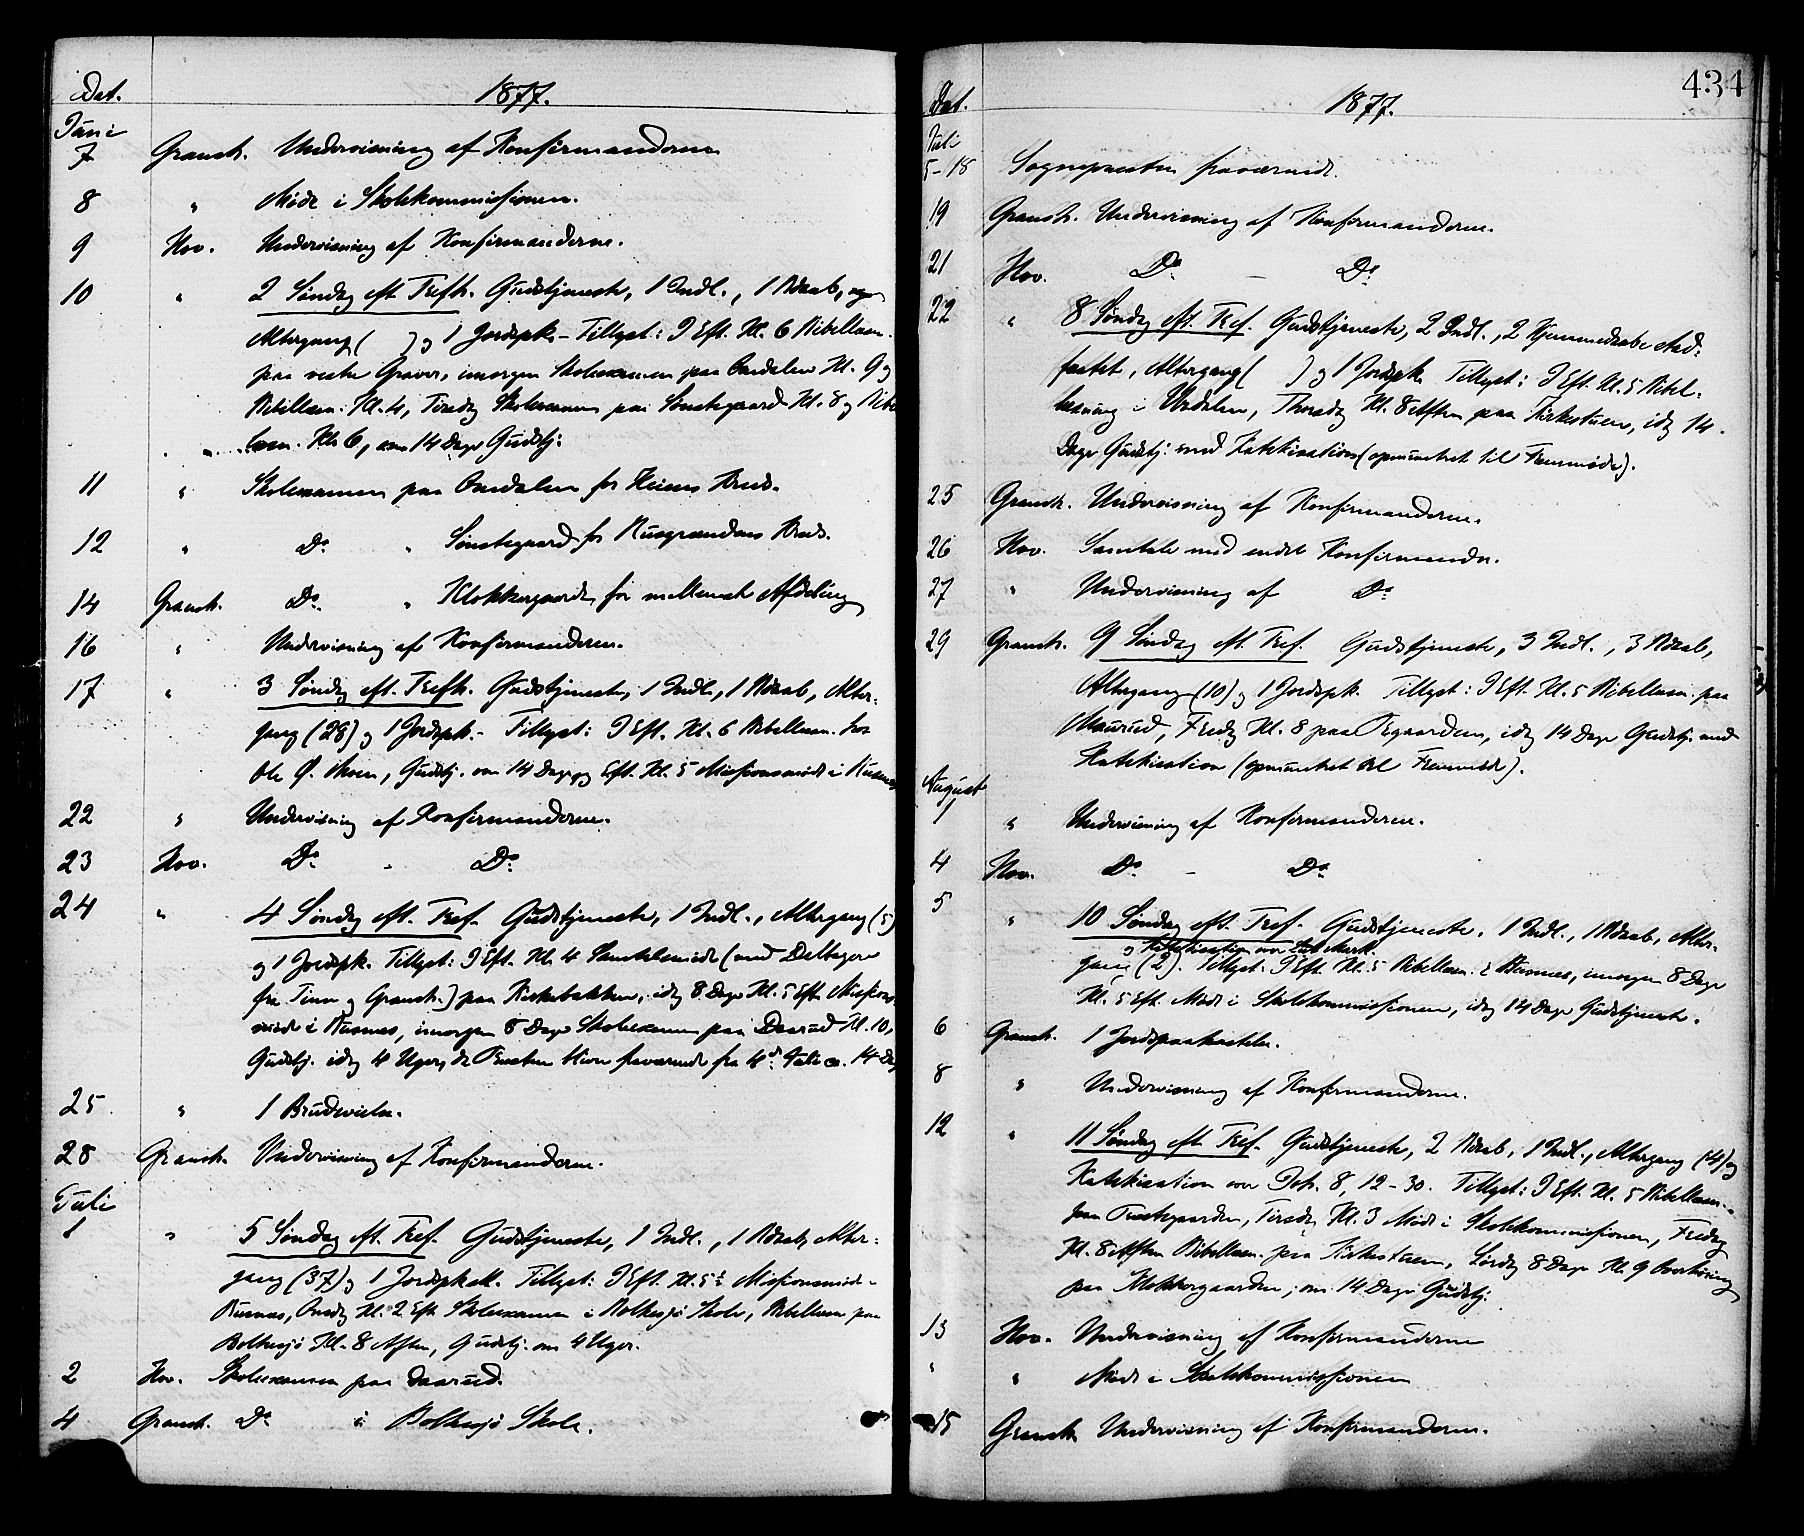 Dat. 1877.
Juni
7 Gransh. Undervisning af Konfirmanderne
8 " Møde i Skolekommissionen.
9 Hov. Undervisning af Konfirmanderne.
10 " 2 Søndag eft. Trefh. Gudstjeneste, 1 Indl., 1 Ndaab,
Altergang ( ) og 1 Jordspk. – Tillyst: I Eft. Kl. 6 Bibellæsn.
paa vestre Graver, imorgen Skoleexamen paa Kl. 9 og
Bibellæsn. Kl. 4, Tirsdag Skoleexamen paa Sønstegaard Kl. 8 og Bibel
læsn. Kl. 6, om 14 Dage Gudstj.
11 " Skoleexamen paa for Heiens Kreds.
12 " Do. " Sønstegaard for Kreds.
14 Gransh. Do. " Klokkergaarden for mellemste Afdeling
16 " Undervisning af Konfirmanderne.
17 " 3 Søndag eft. Trefh. Gudstjeneste, 1 Indl., 1 Ndaab, Alter-
gang (28) og 1 Jordspk. – Tillyst: I Eft. Kl. 6 Bibellæsn. hos
Ole Ø. Moen, Gudstj. om 14 Dage, og Eft. Kl. 5 Missionsmøde i
22 " Undervisning af Konfirmanderne.
23 Hov. Do. – Do.
24 " 4 Søndag eft. Tref. Gudstjeneste, 1 Indl., Altergang (5)
og 1 Jordspk. Tillyst: I Eft. Kl. 4 Samtalemøde (med Deltagere
fra Tinn og Gransh.) paa Kirkebakken, idag 8 Dage Kl. 5 Eft. Missions
møde i Rusnes, imorgen 8 Dage Skoleexamen paa Daarud Kl. 10,
Gudstj. idag 4 Uger, da Præsten bliver fraværende fra 4de Juli ca. 14 Dag
25 " 1 Brudevielse.
28 Gransh. Undervisning af Konfirmanderne.
Juli
1 " 5 Søndag eft. Tref. Gudstjeneste, 1 Indl., 1 Ndaab, Alter-
gang (37) og 1 Jordspk. Tillyst: I Eft. Kl. 5½ Missionsmøde
Rusnes, Onsdag Kl. 2 Eft. Skoleexamen i Bolkesjø Skole, Bibellæsn. paa
Bolkesjø Kl. 8 Aften, Gudstj. om 4 Uger.
2 Hov. Skoleexamen paa Daarud.
4 Gransh. Do. i Bolkesjø Skole.
434
Dat. 1877.
Juli
5–18 Sognepræsten fraværende.
19 Gransh. Undervisning af Konfirmanderne.
21 Hov. Do. – Do.
22 " 8 Søndag eft. Tref. Gudstjeneste, 2 Indl., 2 Hjemmedaabe stad-
fæstet, Altergang ( ) og 1 Jordspk. Tillyst: I Eft. Kl. 5 Bibel-
læsning i Thorsdag Kl. 8 Aften paa Kirkestuen, idag 14
Dage Gudstj. med Katekisation (opmuntret til Fremmøde).
25 Gransh. Undervisning af Konfirmanderne.
26 Hov. Samtale med endel Konfirmander.
27 " Undervisning af Do.
29 Gransh. 9 Søndag eft. Tref. Gudstjeneste, 3 Indl., 3 Ndaab,
Altergang (10) og 1 Jordspk. Tillyst: I Eft. Kl. 5 Bibellæsn. paa
Fredag Kl. 8 paa idag 14 Dage Gudstj. med
Katekisation (opmuntret til Fremmøde).
August
1 " Undervisning af Konfirmanderne.
4 Hov. Do. – Do.
5 " 10 Søndag eft. Tref. Gudstjeneste, 1 Indl., 1 Ndaab, Alter-
og Katekisation over
gang (2). Tillyst: I Eft. Kl. 5 Bibellæsn. i Rusnes, imorgen 8 Dage
Kl. 5 Eft. Møde i Skolekommissionen, idag 14 Dage Gudstjeneste.
6 Gransh. 1 Jordspaakastelse.
8 " Undervisning af Konfirmanderne.
12 " 11 Søndag eft. Tref. Gudstjeneste, 2 Ndaab, 1 Indl., Altergang (4) og
Katekisation over Joh. 8, 12–30. Tillyst: I Eft. Kl. 5 Bibellæsn.
paa Tirsdag Kl. 3 Møde i Skolekommissionen, Fredag
Kl. 8 Aften Bibellæsn. paa Kirkestuen, Lørdag 8 Dage Kl. 9 Overhøring
paa Klokkergaarden, om 14 Dage Gudstj.
13 Hov. Undervisning af Konfirmanderne
" " Møde i Skolekommissionen
15 Gransh. Undervisning af Konfirmanderne.